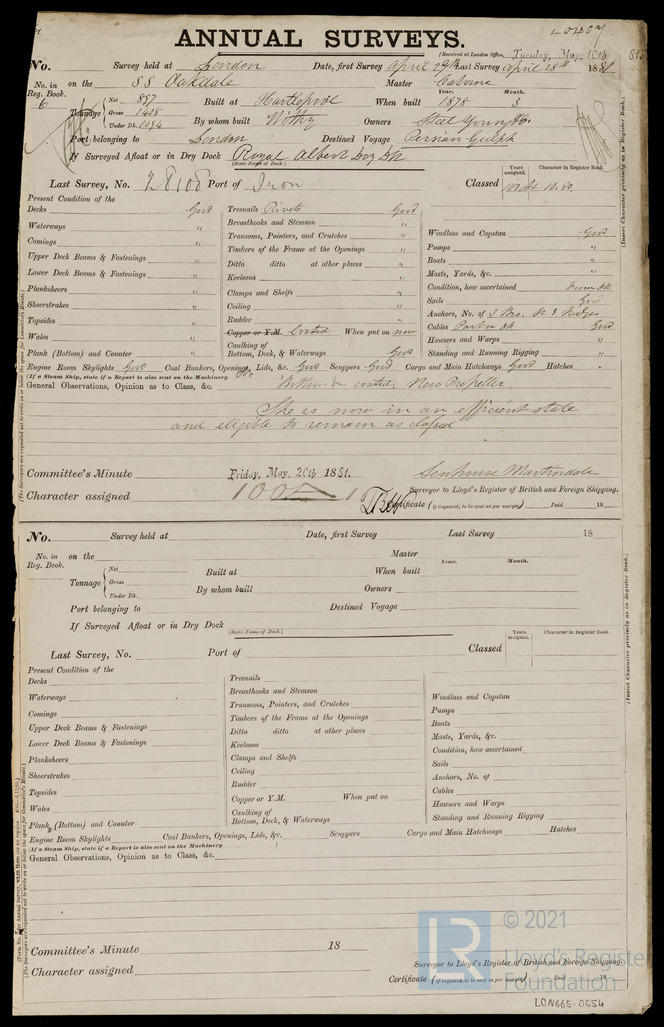 40407
ANNUAL SURVEYS.
(Received at London Office, Tuesday, May, 10th 81
No. Survey held at London Date, first Survey April 29th Last Survey April 28th 1881
No. in Reg. Book. 6 on the SS Oakdale Master Osborne
Tonnage Net 897 Gross 1408 Under Dk. 1094
Built at Hartlepool When built Year. 1878 Month. 3
By whom built Withy Owners Steel Young & Co.
Port belonging to London Destined Voyage Persian Gulph
If Surveyed Afloat or in Dry Dock Royal Albert Dry Dk
(State Name of Dock.)
Last Survey, No. 28108 Port of Iron Classed Years assigned. Character in Register Book.
(Insert Character precisely as in Register Book.)
Present Condition of the
Decks Good
Waterways "
Comings "
Upper Deck Beams & Fastenings "
Lower Deck Beams & Fastenings "
Planksheers "
Sheerstrakes "
Topsides "
Wales "
Plank (Bottom) and Counter "
Treenails Rivets Good
Breasthooks and Stemson "
Transoms, Pointers, and Crutches "
Timbers of the Frame at the Openings "
Ditto ditto at other places "
Keelsons "
Clamps and Shelfs "
Ceiling "
Rudder "
Copper or Y.M. Coated When put on now
Caulking of Bottom, Deck, & Waterways Good
Windlass and Capstan Good
Pumps "
Boats "
Masts, Yards, &c. "
Condition, how ascertained From dk
Sails Good
Anchors, No. of 3 Brs.
Cables Part on dk Good
Hawsers and Warps "
Standing and Running Rigging "
Engine Room Skylights Good Coal Bunkers, Openings, Lids, &c. Good Scuppers Good Cargo and Main Hatchways Good Hatches "
(If a Steam Ship, state if a Report is also sent on the Machinery
General Observations, Opinion as to Class, &c. Bottom coated, New Propeller
She is now in an efficient state
and eligible to remain as classed
Committee's Minute Friday, May, 20th 1881. Senhouse Martindale
Surveyor to Lloyd's Register of British and Foreign Shipping.
Character assigned 100A1
Certificate (if required, to be sent as per margin) Paid 18
No. Survey held at Date, first Survey Last Survey 18
No. in Reg. Book. on the Master
Tonnage Net Gross Under Dk.
Built at When built Year. Month.
By whom built Owners
Port belonging to Destined Voyage
If Surveyed Afloat or in Dry Dock
(State Name of Dock.)
Last Survey, No. Port of Classed Years assigned. Character in Register Book.
(Insert Character precisely as in Register Book.)
Present Condition of the
Decks
Waterways
Comings
Upper Deck Beams & Fastenings
Lower Deck Beams & Fastenings
Planksheers
Sheerstrakes
Topsides
Wales
Plank (Bottom) and Counter
Treenails
Breasthooks and Stemson
Transoms, Pointers, and Crutches
Timbers of the Frame at the Openings
Ditto ditto at other places
Keelsons
Clamps and Shelfs
Ceiling
Rudder
Copper or Y.M. When put on
Caulking of Bottom, Deck, & Waterways
Windlass and Capstan
Pumps
Boats
Masts, Yards, &c.
Condition, how ascertained
Sails
Anchors, No. of
Cables
Hawsers and Warps
Standing and Running Rigging
Engine Room Skylights Coal Bunkers, Openings, Lids, &c. Scuppers Cargo and Main Hatchways Hatches
(If a Steam Ship, state if a Report is also sent on the Machinery
General Observations, Opinion as to Class, &c.
Committee's Minute 18
Surveyor to Lloyd's Register of British and Foreign Shipping.
Character assigned
Certificate (if required, to be sent as per margin) Paid 18
LR © 2021
Lloyd's Register
Foundation
LON665-0554